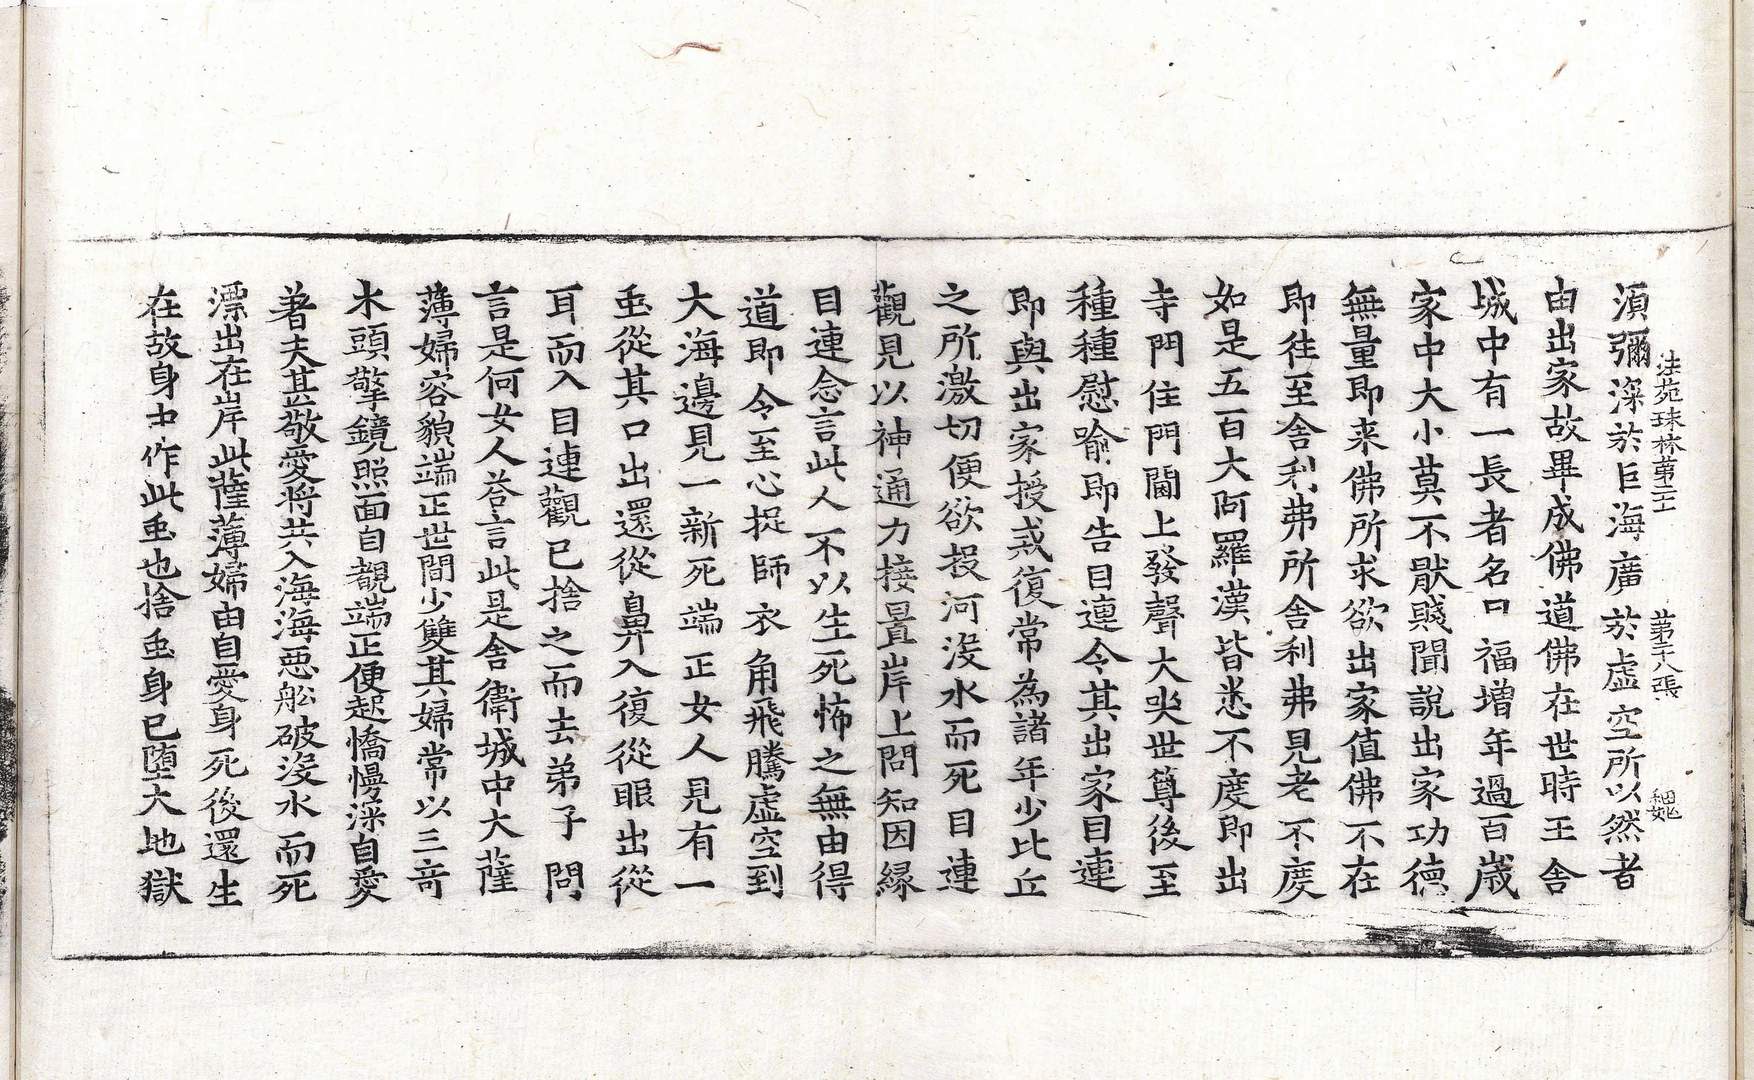 法苑珠林第二十二 第十八張 魏
須彌深於巨海廣於虛空所以然者
由出家故畢成佛道佛在世時王舍
城中有一長者名曰福增年過百歲
家中大小莫不猒賤聞說出家功德
無量即来佛所求欲出家值佛不在
即往至舍利弗所舍利弗見老不度
如是五百大阿羅漢皆悉不度即出
寺門住門閫上發聲大哭世尊後至
種種慰喻即告目連令其出家目連
即與出家授戒復常為諸年少比丘
之所激切便欲投河沒水而死目連
觀見以神通力接置岸上問知因緣
目連念言此人不以生死怖之無由得
道即令至心捉師衣角飛騰虛空到
大海邊見一新死端正女人見有一
虫從其口出還從鼻入復從眼出從
耳而入目連觀已捨之而去弟子問
言是何女人荅言此是舍衛城中大薩
薄婦容貌端正世間少雙其婦常以三竒
木頭擎鏡照面自覩端正便起憍慢深自愛
著夫甚敬愛將共入海海惡船破沒水而死
漂出在岸此薩薄婦由自愛身死後還生
在故身中作此虫也捨虫身已墮大地獄